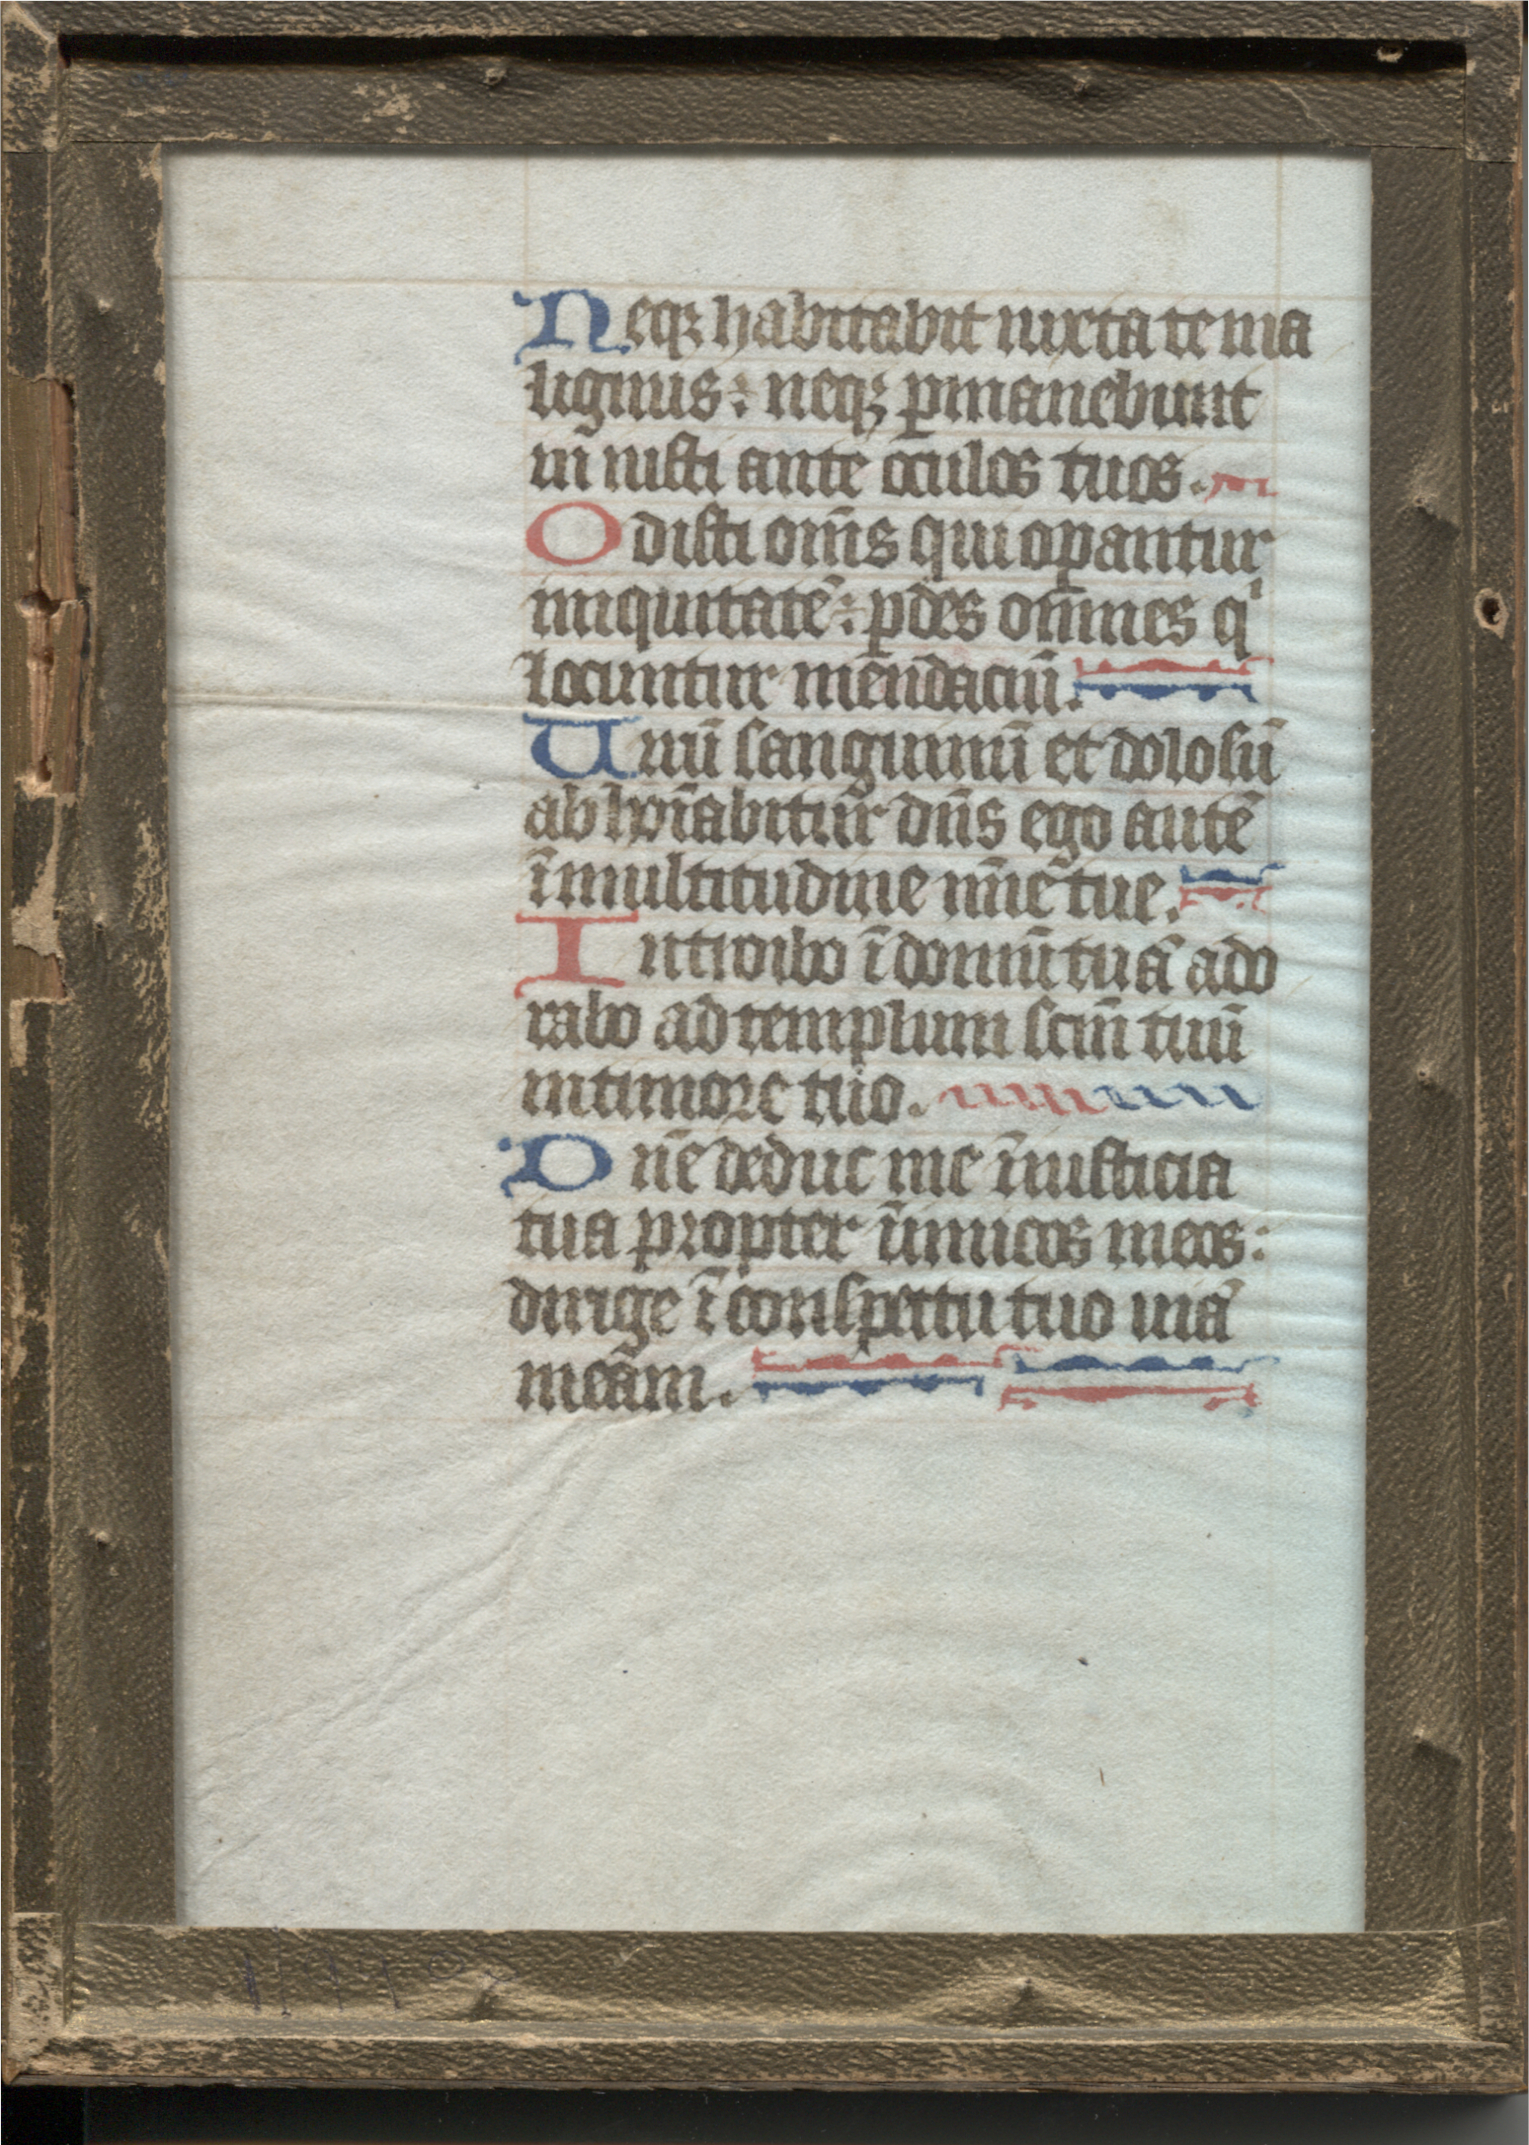 Neqꝫ habitabit iuxta te ma
lignus : neqꝫ ꝑmanebunt
in iusti ante oculos tuos .
Odisti om̄s qui oꝑantur
iniquitatē : ꝑdes om̄nes qⁱ
locuntur mendaciū .
Uirū sanguinū et dolosū
ab hoīabitur dn̄s ego autē
ī multitudine mīe tue .
Introibo ī domū tuā ado
rabo ad templum scm̄ tuū
in timore tuo .
Dn̄e deduc me ī iusticia
tua propter inimicos meos :
dirige ī conspectu tuo uiā
meam .